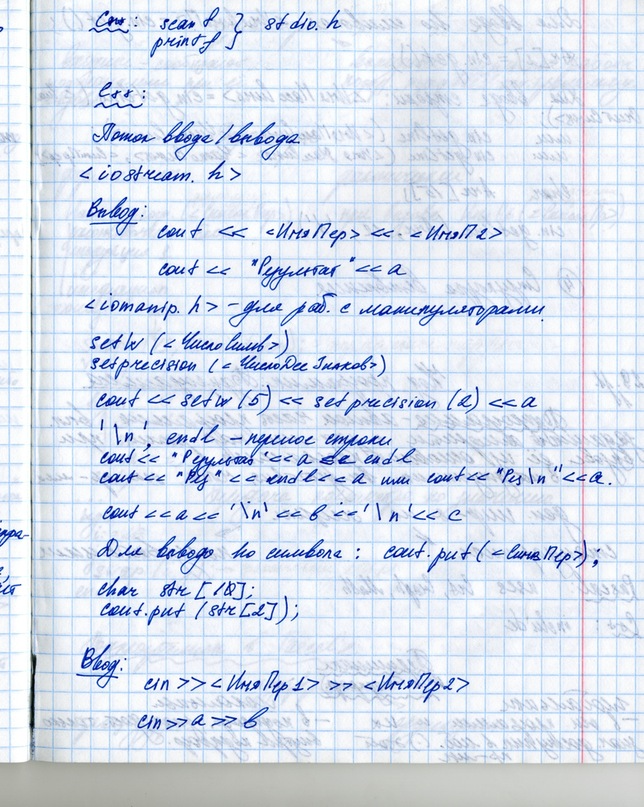 C**: scanf } stdio.h
printf }
C++:
Поток ввода/вывода
<iostream.h>
Вывод:
cout << <ИмяПер> << <ИмяП2>
cout << "Результат" << a
<iomanip.h> - для раб. с манипуляторами.
setw (<ЧислоСимв>)
setprecision (<ЧислоДесЗнаков>)
cout << setw(5) << setprecision(2) << a
'\n', endl - перенос строки
cout << "Результат" << a << endl
cout << "Рез" << endl << a или cout << "Рез\n" << a.
cout << a << '\n' << b << '\n' << c
Для вывода по символа: cout.put(<СимПер>);
char str[10];
cout.put(str[2]);
Ввод:
cin >> <ИмяПер1> >> <ИмяПер2>
cin >> a >> b